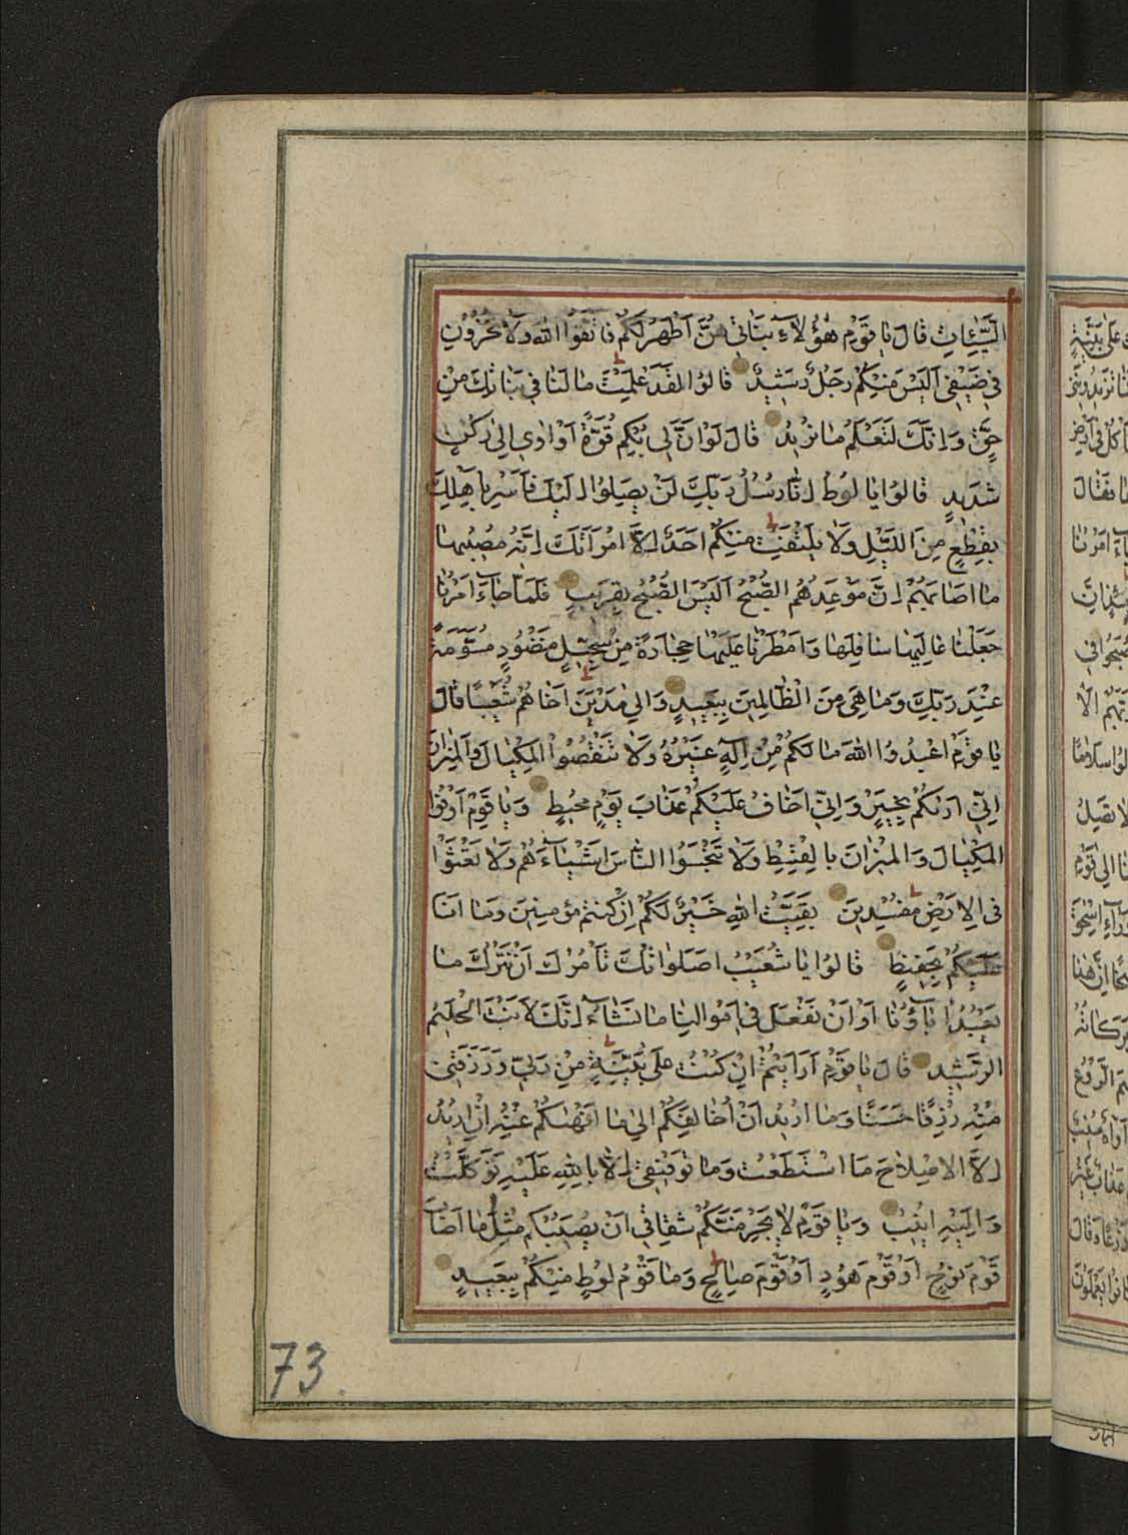 السَّيِّئَاتِ قَالَ يَا قَوْمِ هٰؤُلَآءِ بَنَاتِي هُنَّ أَطْهَرُ لَكُمْ فَاتَّقُوا اللهَ وَلَا تُخْزُونِ
فِي ضَيْفِي أَلَيْسَ مِنْكُمْ رَجُلٌ رَشِيدٌ قَالُوا لَقَدْ عَلِمْتَ مَا لَنَا فِي بَنَاتِكَ مِنْ
حَقٍّ وَإِنَّكَ لَتَعْلَمُ مَا نُرِيدُ قَالَ لَوْ أَنَّ لِي بِكُمْ قُوَّةً أَوْ اٰوِي إِلٰى رُكْنٍ
شَدِيدٍ قَالُوا يَا لُوطُ إِنَّا رُسُلُ رَبِّكَ لَنْ يَصِلُوا إِلَيْكَ فَأَسْرِ بِأَهْلِكَ
بِقِطْعٍ مِنَ اللَّيْلِ وَلَا يَلْتَفِتْ مِنْكُمْ أَحَدٌ إِلَّا امْرَأَتَكَ إِنَّهُ مُصِيبُهَا
مَا أَصَابَهُمْ إِنَّ مَوْعِدَهُمُ الصُّبْحُ أَلَيْسَ الصُّبْحُ بِقَرِيبٍ فَلَمَّا جَآءَ أَمْرُنَا
جَعَلْنَا عَالِيَهَا سَافِلَهَا وَأَمْطَرْنَا عَلَيْهَا حِجَارَةً مِنْ سِجِّيلٍ مَنْضُودٍ مُسَوَّمَةً
عِنْدَ رَبِّكَ وَمَا هِيَ مِنَ الظَّالِمِينَ بِبَعِيدٍ وَإِلٰى مَدْيَنَ أَخَاهُمْ شُعَيْبًا قَالَ
يَا قَوْمِ اعْبُدُوا اللهَ مَا لَكُمْ مِنْ إِلٰهٍ غَيْرُهُ وَلَا تَنْقُصُوا الْمِكْيَالَ وَالْمِيزَانَ
إِنِّي أَرٰىكُمْ بِخَيْرٍ وَإِنِّي أَخَافُ عَلَيْكُمْ عَذَابَ يَوْمٍ مُحِيطٍ وَيَا قَوْمِ أَوْفُوا
الْمِكْيَالَ وَالْمِيزَانَ بِالْقِسْطِ وَلَا تَبْخَسُوا النَّاسَ أَشْيَآءَهُمْ وَلَا تَعْثَوْا
فِي الْأَرْضِ مُفْسِدِينَ بَقِيَّتُ اللهِ خَيْرٌ لَكُمْ إِنْ كُنْتُمْ مُؤْمِنِينَ وَمَا أَنَا
عَلَيْكُمْ بِحَفِيظٍ قَالُوا يَا شُعَيْبُ أَصَلٰوتُكَ تَأْمُرُكَ أَنْ نَتْرُكَ مَا
يَعْبُدُ اٰبَآؤُنَا أَوْ أَنْ نَفْعَلَ فِي أَمْوَالِنَا مَا نَشَآءُ إِنَّكَ لَأَنْتَ الْحَلِيمُ
الرَّشِيدُ قَالَ يَا قَوْمِ أَرَأَيْتُمْ إِنْ كُنْتُ عَلٰى بَيِّنَةٍ مِنْ رَبِّي وَرَزَقَنِي
مِنْهُ رِزْقًا حَسَنًا وَمَا أُرِيدُ أَنْ أُخَالِفَكُمْ إِلٰى مَا أَنْهٰىكُمْ عَنْهُ إِنْ أُرِيدُ
إِلَّا الْإِصْلَاحَ مَا اسْتَطَعْتُ وَمَا تَوْفِيقِي إِلَّا بِاللهِ عَلَيْهِ تَوَكَّلْتُ
وَإِلَيْهِ أُنِيبُ وَيَا قَوْمِ لَا يَجْرِمَنَّكُمْ شِقَاقِي أَنْ يُصِيبَكُمْ مِثْلُ مَا أَصَابَ
قَوْمَ نُوحٍ أَوْ قَوْمَ هُودٍ أَوْ قَوْمَ صَالِحٍ وَمَا قَوْمُ لُوطٍ مِنْكُمْ بِبَعِيدٍ
73